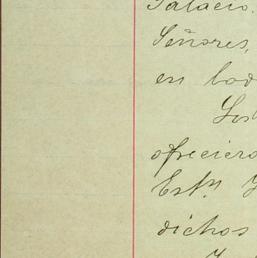 Palacio.
Señores,
en
Los
ofreciero
Estn
dichos